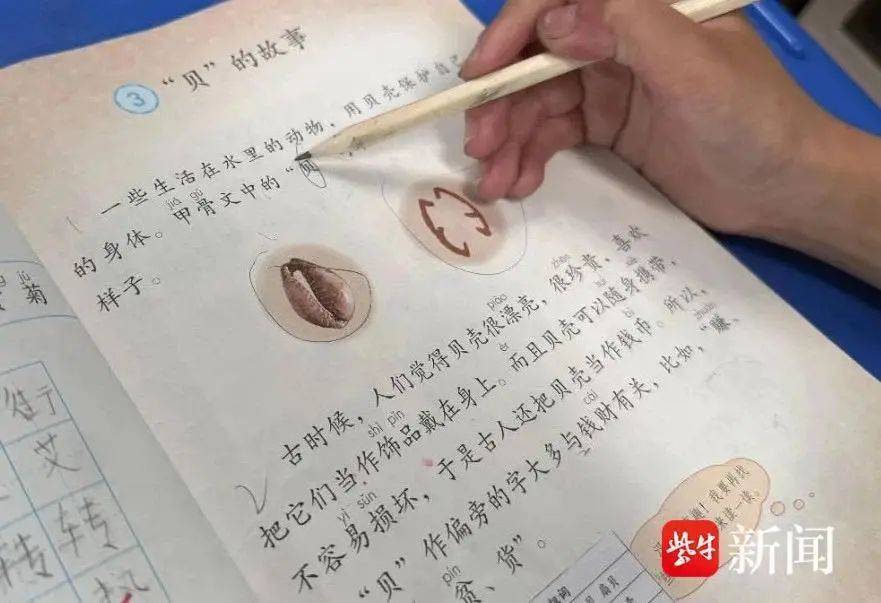 3
“贝”的故事
一些生活在水里的动物，用贝壳保护自己
jiǎ gǔ
的身体。甲骨文中的“贝
样子。
piào zhēn
古时候，人们觉得贝壳很漂亮，很珍贵，喜欢
shì pǐn ér suí
把它们当作饰品戴在身上。而且贝壳可以随身携带，
yì sǔn bì
不容易损坏，于是古人还把贝壳当作钱币。所以，
cái zhuàn
“贝”作偏旁的字大多与钱财有关，比如，“赚、
pín
贫、货”。
jú
菊
艾
转 转
我要再找
来读一读。
扇贝
紫牛新闻